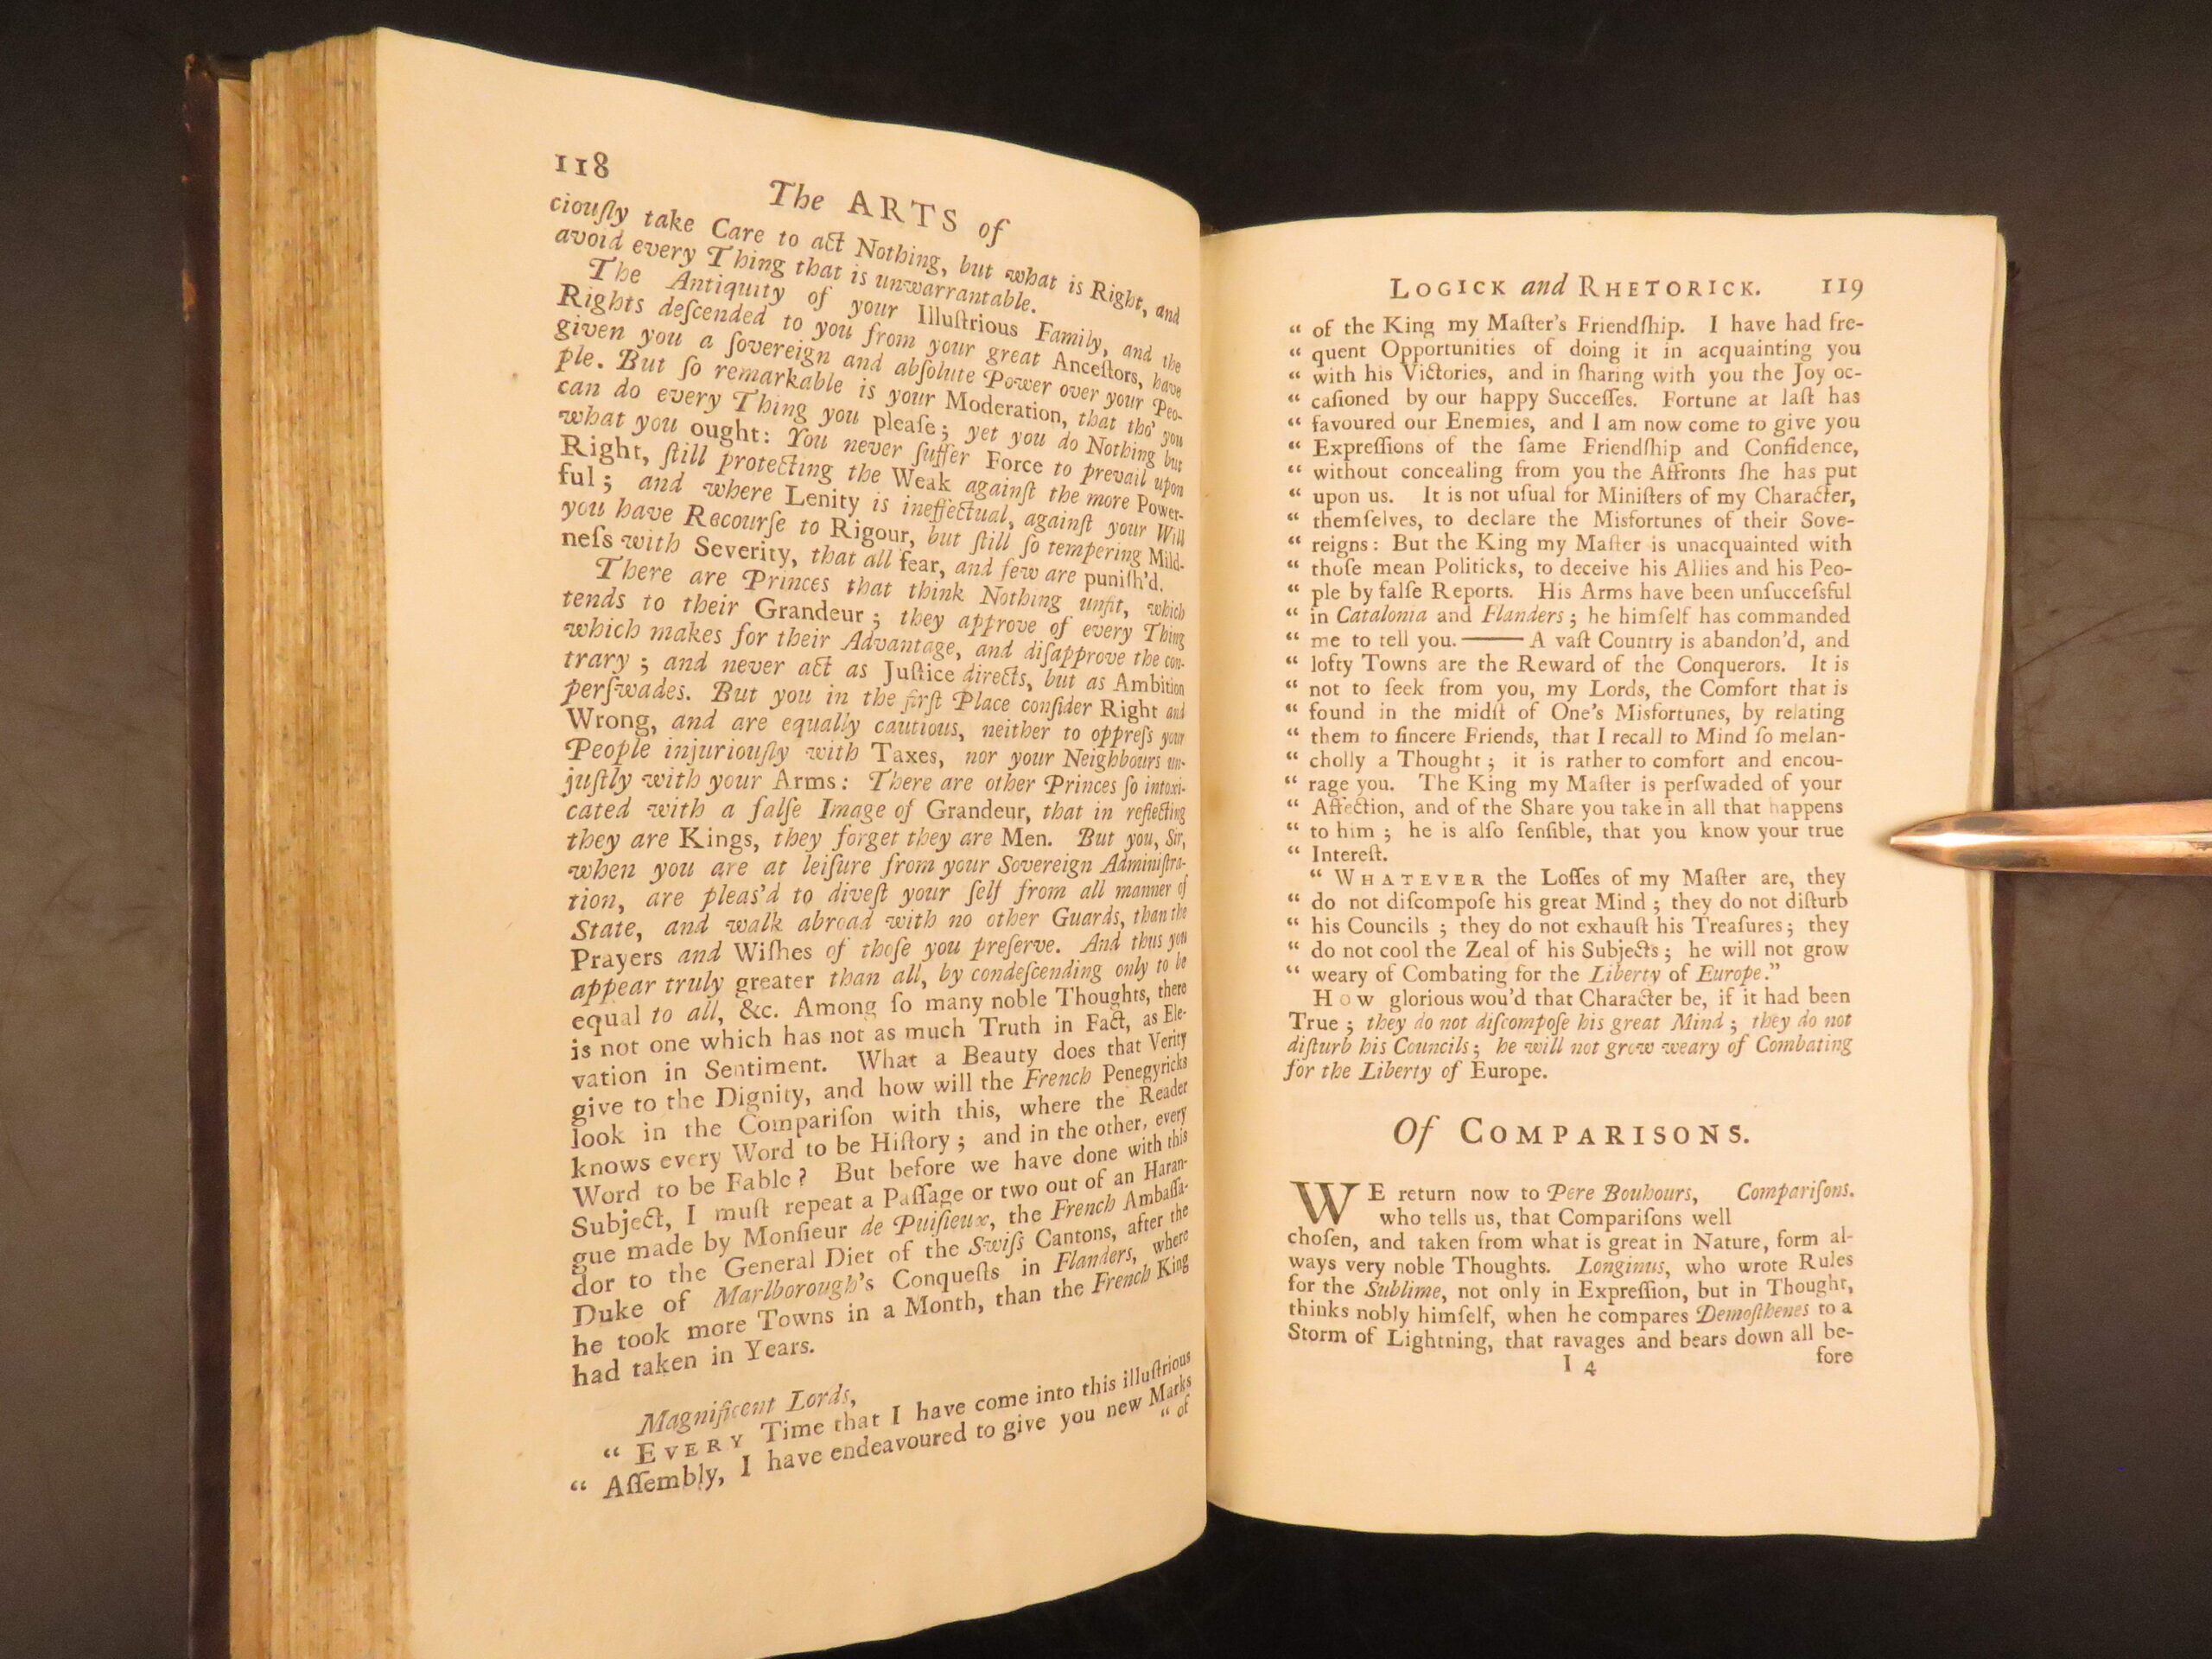 118
The ARTS of
ciouſly take Care to act Nothing, but what is Right, and
avoid every Thing that is unwarrantable.
The Antiquity of your Illuſtrious Family, and the
Rights deſcended to you from your great Anceſtors, have
given you a ſovereign and abſolute Power over your Peo-
ple. But ſo remarkable is your Moderation, that tho' you
can do every Thing you pleaſe; yet you do Nothing but
what you ought: You never ſuffer Force to prevail upon
Right, ſtill protecting the Weak againſt the more Power-
ful; and where Lenity is ineffectual, againſt your Will
you have Recourſe to Rigour, but ſtill ſo tempering Mild-
neſs with Severity, that all fear, and few are puniſh'd.
There are Princes that think Nothing unfit, which
tends to their Grandeur; they approve of every Thing
which makes for their Advantage, and diſapprove the con-
trary; and never act as Juſtice directs, but as Ambition
perſwades. But you in the firſt Place conſider Right and
Wrong, and are equally cautious, neither to oppreſs your
People injuriouſly with Taxes, nor your Neighbours un-
juſtly with your Arms: There are other Princes ſo intoxi-
cated with a falſe Image of Grandeur, that in reflecting
they are Kings, they forget they are Men. But you, Sir,
when you are at leiſure from your Sovereign Adminiſtra-
tion, are pleas'd to diveſt your ſelf from all manner of
State, and walk abroad with no other Guards, than the
Prayers and Wiſhes of thoſe you preſerve. And thus you
appear truly greater than all, by condeſcending only to be
equal to all, &c. Among ſo many noble Thoughts, there
is not one which has not as much Truth in Fact, as Ele-
vation in Sentiment. What a Beauty does that Verity
give to the Dignity, and how will the French Penegyricks
look in the Compariſon with this, where the Reader
knows every Word to be Hiſtory; and in the other, every
Word to be Fable? But before we have done with this
Subject, I muſt repeat a Paſſage or two out of an Haran-
gue made by Monſieur de Puiſieux, the French Ambaſſa-
dor to the General Diet of the Swiſs Cantons, after the
Duke of Marlborough's Conqueſts in Flanders, where
he took more Towns in a Month, than the French King
had taken in Years.
Magnificent Lords,
“ EVERY Time that I have come into this illuſtrious
“ Aſſembly, I have endeavoured to give you new Marks
“ of
LOGICK and RHETORICK. 119
“ of the King my Maſter's Friendſhip. I have had fre-
“ quent Opportunities of doing it in acquainting you
“ with his Victories, and in ſharing with you the Joy oc-
“ caſioned by our happy Succeſſes. Fortune at laſt has
“ favoured our Enemies, and I am now come to give you
“ Expreſſions of the ſame Friendſhip and Confidence,
“ without concealing from you the Affronts ſhe has put
“ upon us. It is not uſual for Miniſters of my Character,
“ themſelves, to declare the Misfortunes of their Sove-
“ reigns: But the King my Maſter is unacquainted with
“ thoſe mean Politicks, to deceive his Allies and his Peo-
“ ple by falſe Reports. His Arms have been unſucceſsful
“ in Catalonia and Flanders; he himſelf has commanded
“ me to tell you.—— A vaſt Country is abandon'd, and
“ lofty Towns are the Reward of the Conquerors. It is
“ not to ſeek from you, my Lords, the Comfort that is
“ found in the midſt of One's Misfortunes, by relating
“ them to ſincere Friends, that I recall to Mind ſo melan-
“ cholly a Thought; it is rather to comfort and encou-
“ rage you. The King my Maſter is perſwaded of your
“ Affection, and of the Share you take in all that happens
“ to him; he is alſo ſenſible, that you know your true
“ Intereſt.
“ WHATEVER the Loſſes of my Maſter are, they
“ do not diſcompoſe his great Mind; they do not diſturb
“ his Councils; they do not exhauſt his Treaſures; they
“ do not cool the Zeal of his Subjects; he will not grow
“ weary of Combating for the Liberty of Europe.”
HOW glorious wou'd that Character be, if it had been
True; they do not diſcompoſe his great Mind; they do not
diſturb his Councils; he will not grow weary of Combating
for the Liberty of Europe.
Of COMPARISONS.
WE return now to Pere Bouhours, Compariſons.
who tells us, that Compariſons well
choſen, and taken from what is great in Nature, form al-
ways very noble Thoughts. Longinus, who wrote Rules
for the Sublime, not only in Expreſſion, but in Thought,
thinks nobly himſelf, when he compares Demoſthenes to a
Storm of Lightning, that ravages and bears down all be-
I 4 fore